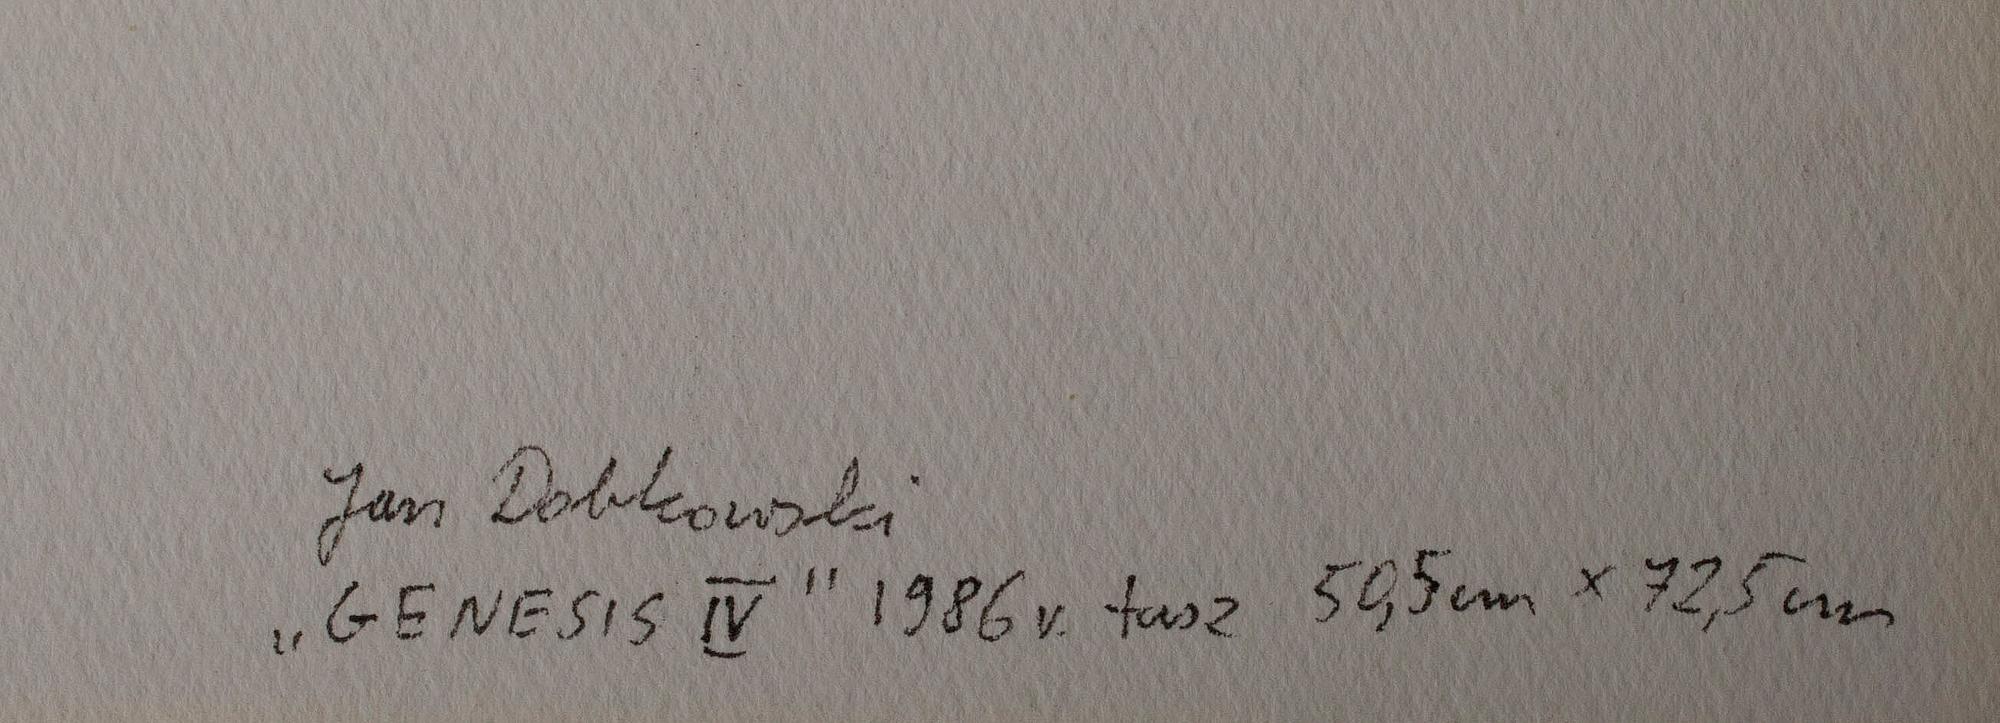 Jan Dobkowski
„GENESIS IV" 1986 r. tusz 50,5 cm × 72,5 cm